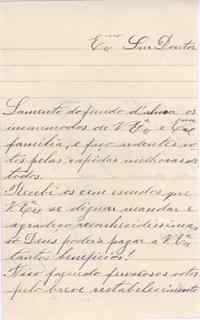 Exmo Snr Doutor
Lamento do fundo d'alma os
incommodos de V. Exa e Exma
familia, e faço ardentes vo-
tos pelas rapidas melhoras de
todos.
Recebi os cem escudos que
V. Exa se dignou mandar e
agradeço reconhecidissima,
só Deus poderá pagar a V. Exa
tantos beneficios!
fazendo fervorosos votos
pelo breve restabelecimento